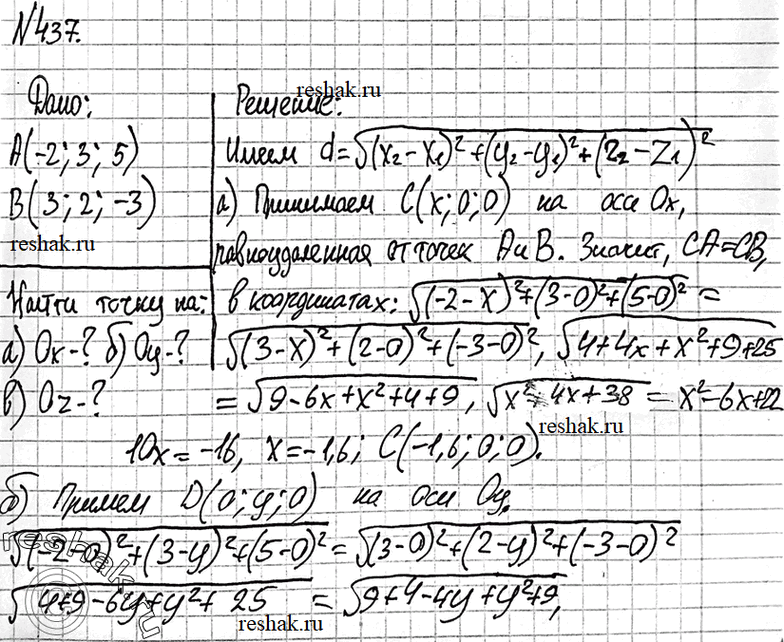 №437.
reshak.ru
Дано:
A(-2; 3; 5)
B(3; 2; -3)
reshak.ru
Найти точку на:
а) Ox-? б) Oy-?
в) Oz-?
Решение:
Имеем d=√(x₂-x₁)²+(y₂-y₁)²+(z₂-z₁)²
а) Принимаем C(x; 0; 0) на оси Ox,
равноудаленная от точек A и B. Значит, CA=CB,
в координатах: √(-2-x)²+(3-0)²+(5-0)² =
√(3-x)²+(2-0)²+(-3-0)², √4+4x+x²+9+25
= √9-6x+x²+4+9, √x²+4x+38 = x²-6x+22
reshak.ru
10x=-16, x=-1,6; C(-1,6; 0; 0).
б) Примем D(0; y; 0) на оси Oy.
√(-2-0)²+(3-y)²+(5-0)² = √(3-0)²+(2-y)²+(-3-0)²
√4+9-6y+y²+25 = √9+4-4y+y²+9,
reshak.ru
reshak.ru